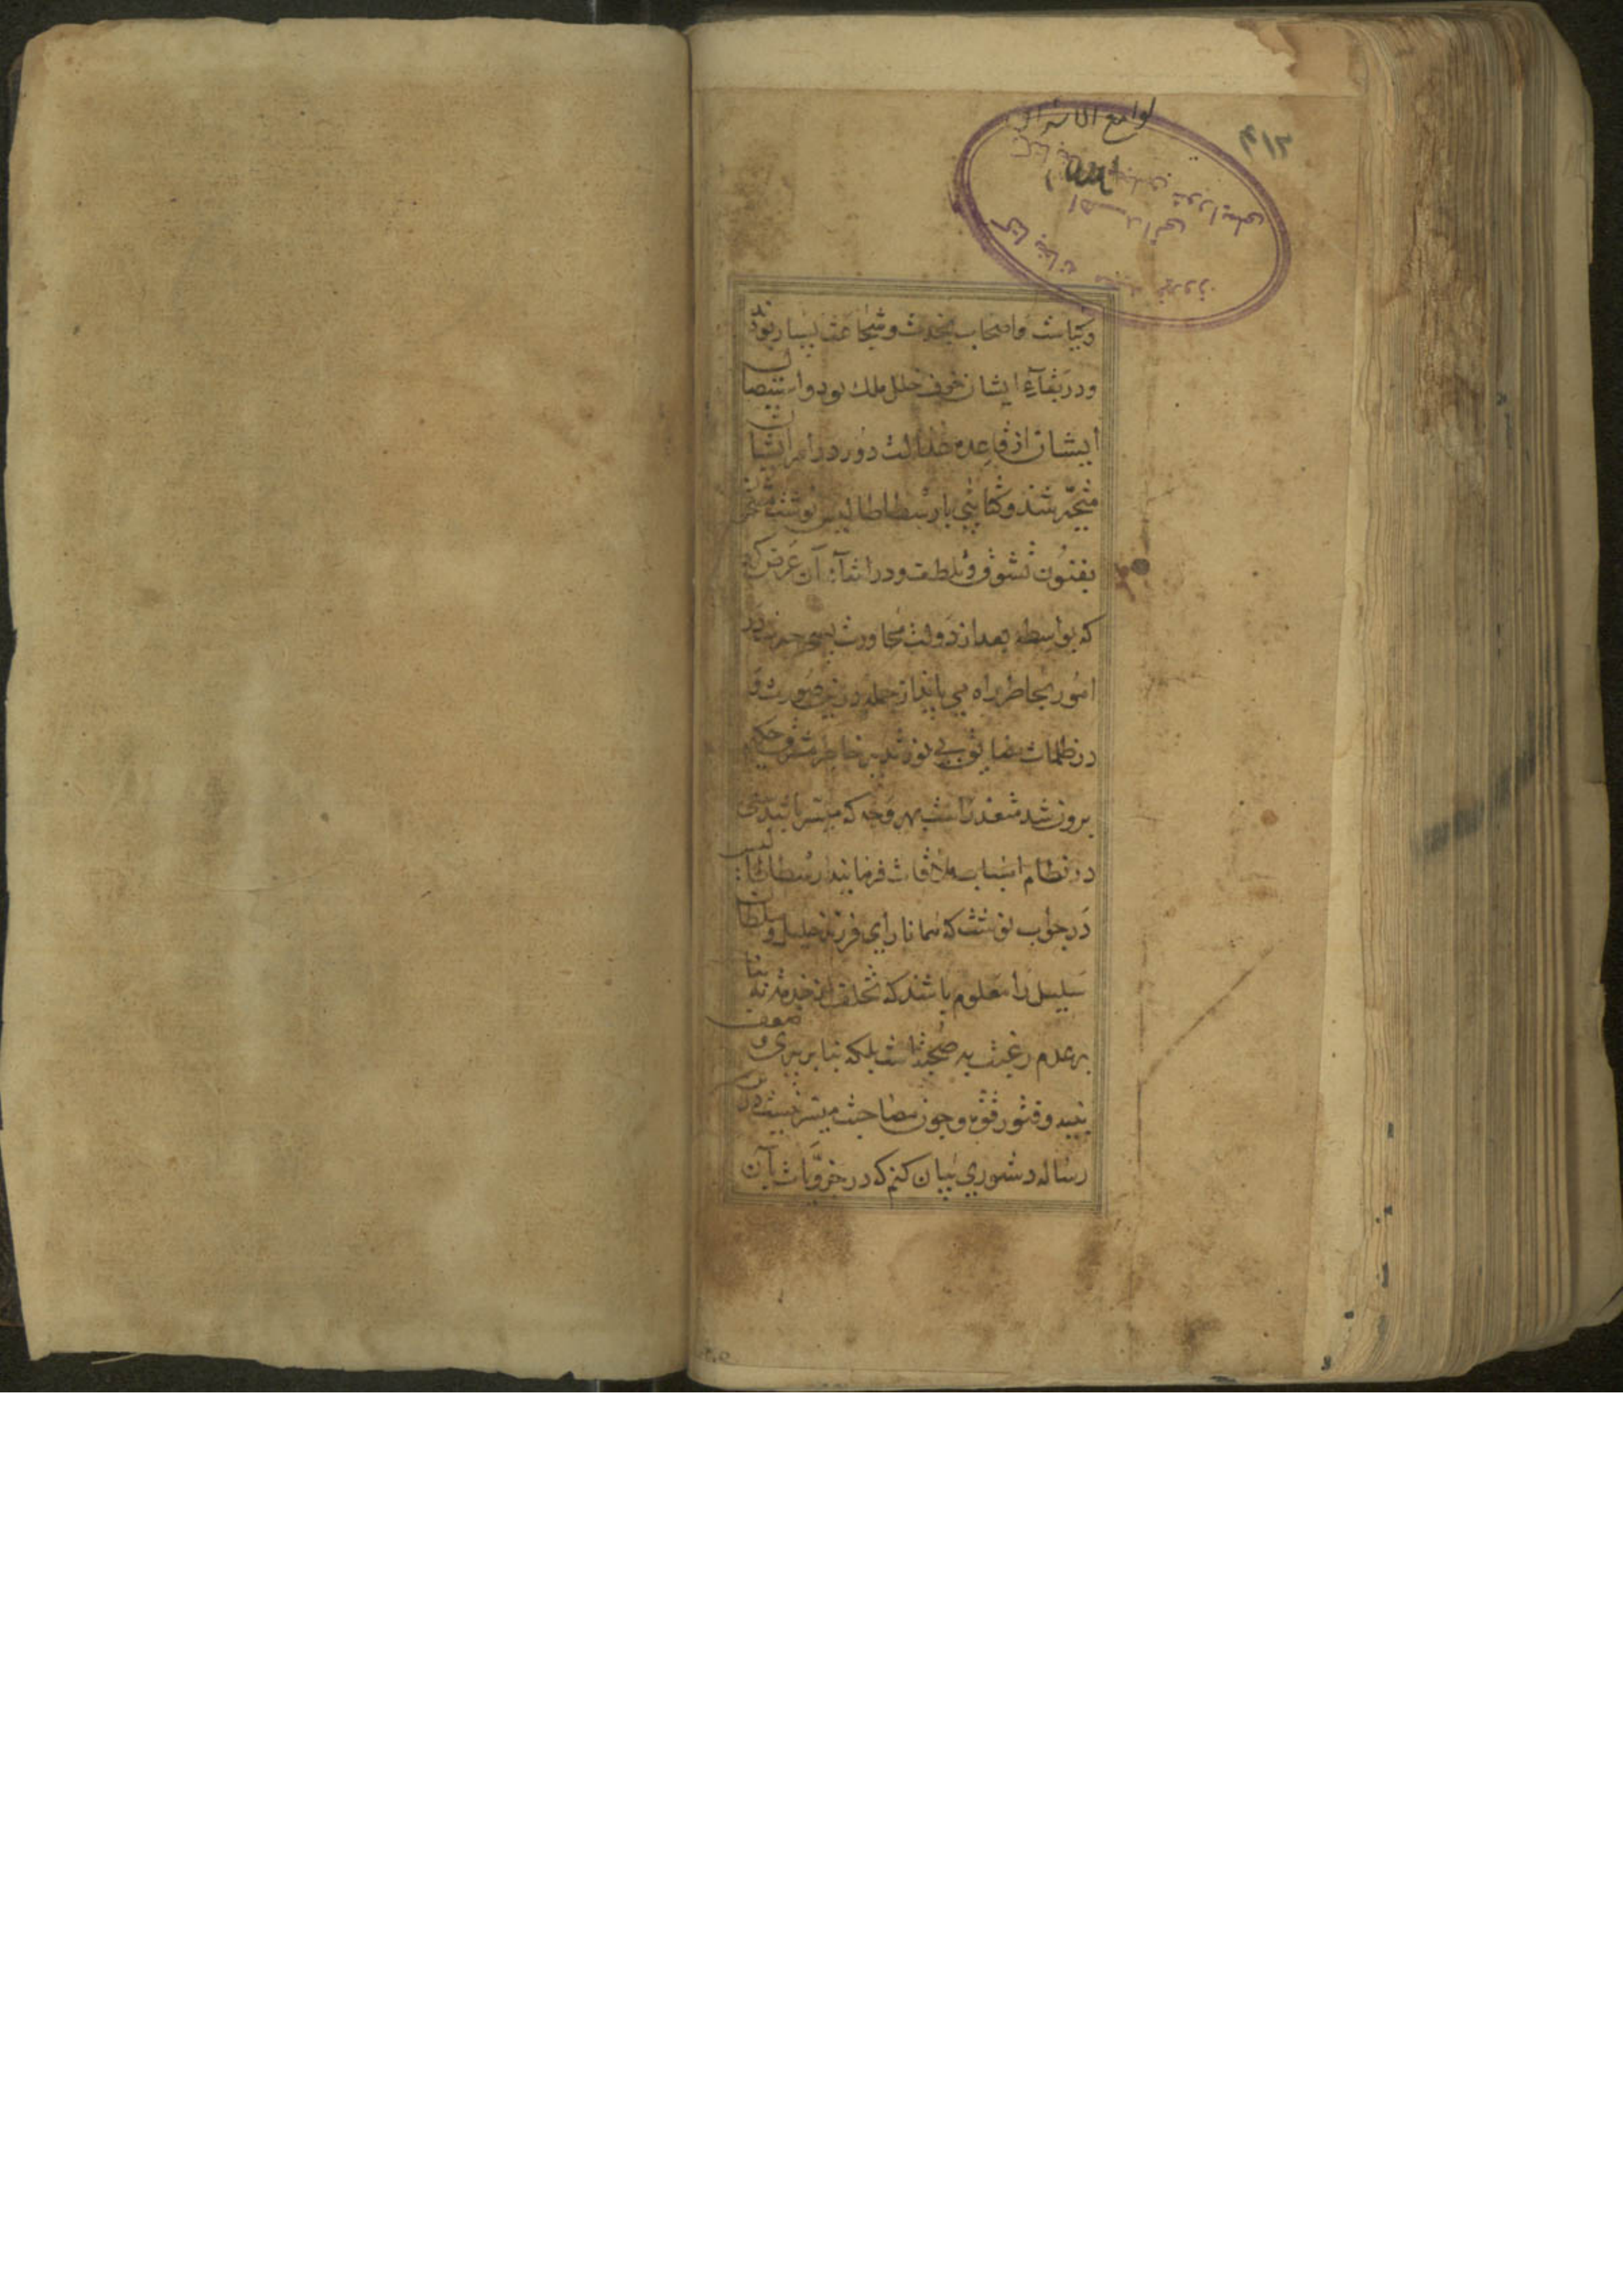 لوامع الاشراق
۴۱۲
وکیاست واصحاب نجدت وشجاعت بسیار بودند
ودر بقآء ایشان خوف خلل ملك بود واستیصال
ایشان از قاعده عدالت دور در امر ایشان
متحیر شد وکتابی بارسطاطالیس نوشت
بفنون تشوق وتلطف ودر اثنآء آن عرض کرد
که بواسطه بعد از دولت مجاورت
امور بخاطر راه می یابد از جمله درین صورت و
در ظلمات بی نور تدبیر خاطر مشرق حکیم
برون شد متعذر است بهر وجه که میسر باشد سعی
در نظام اسباب ملاقات فرمایند ارسطاطالیس
در جواب نوشت که همانا رای فرزند جلیل وسلطان
را معلوم باشد که تخلف از خدمت نه بنا
بر عدم رغبت به صحبت است بلکه بنا بر پیری و ضعف
بنیه وفتور قوه وچون مصاحبت میسر نیست درین
رساله دستوری بیان کنم که در جزویات بآن